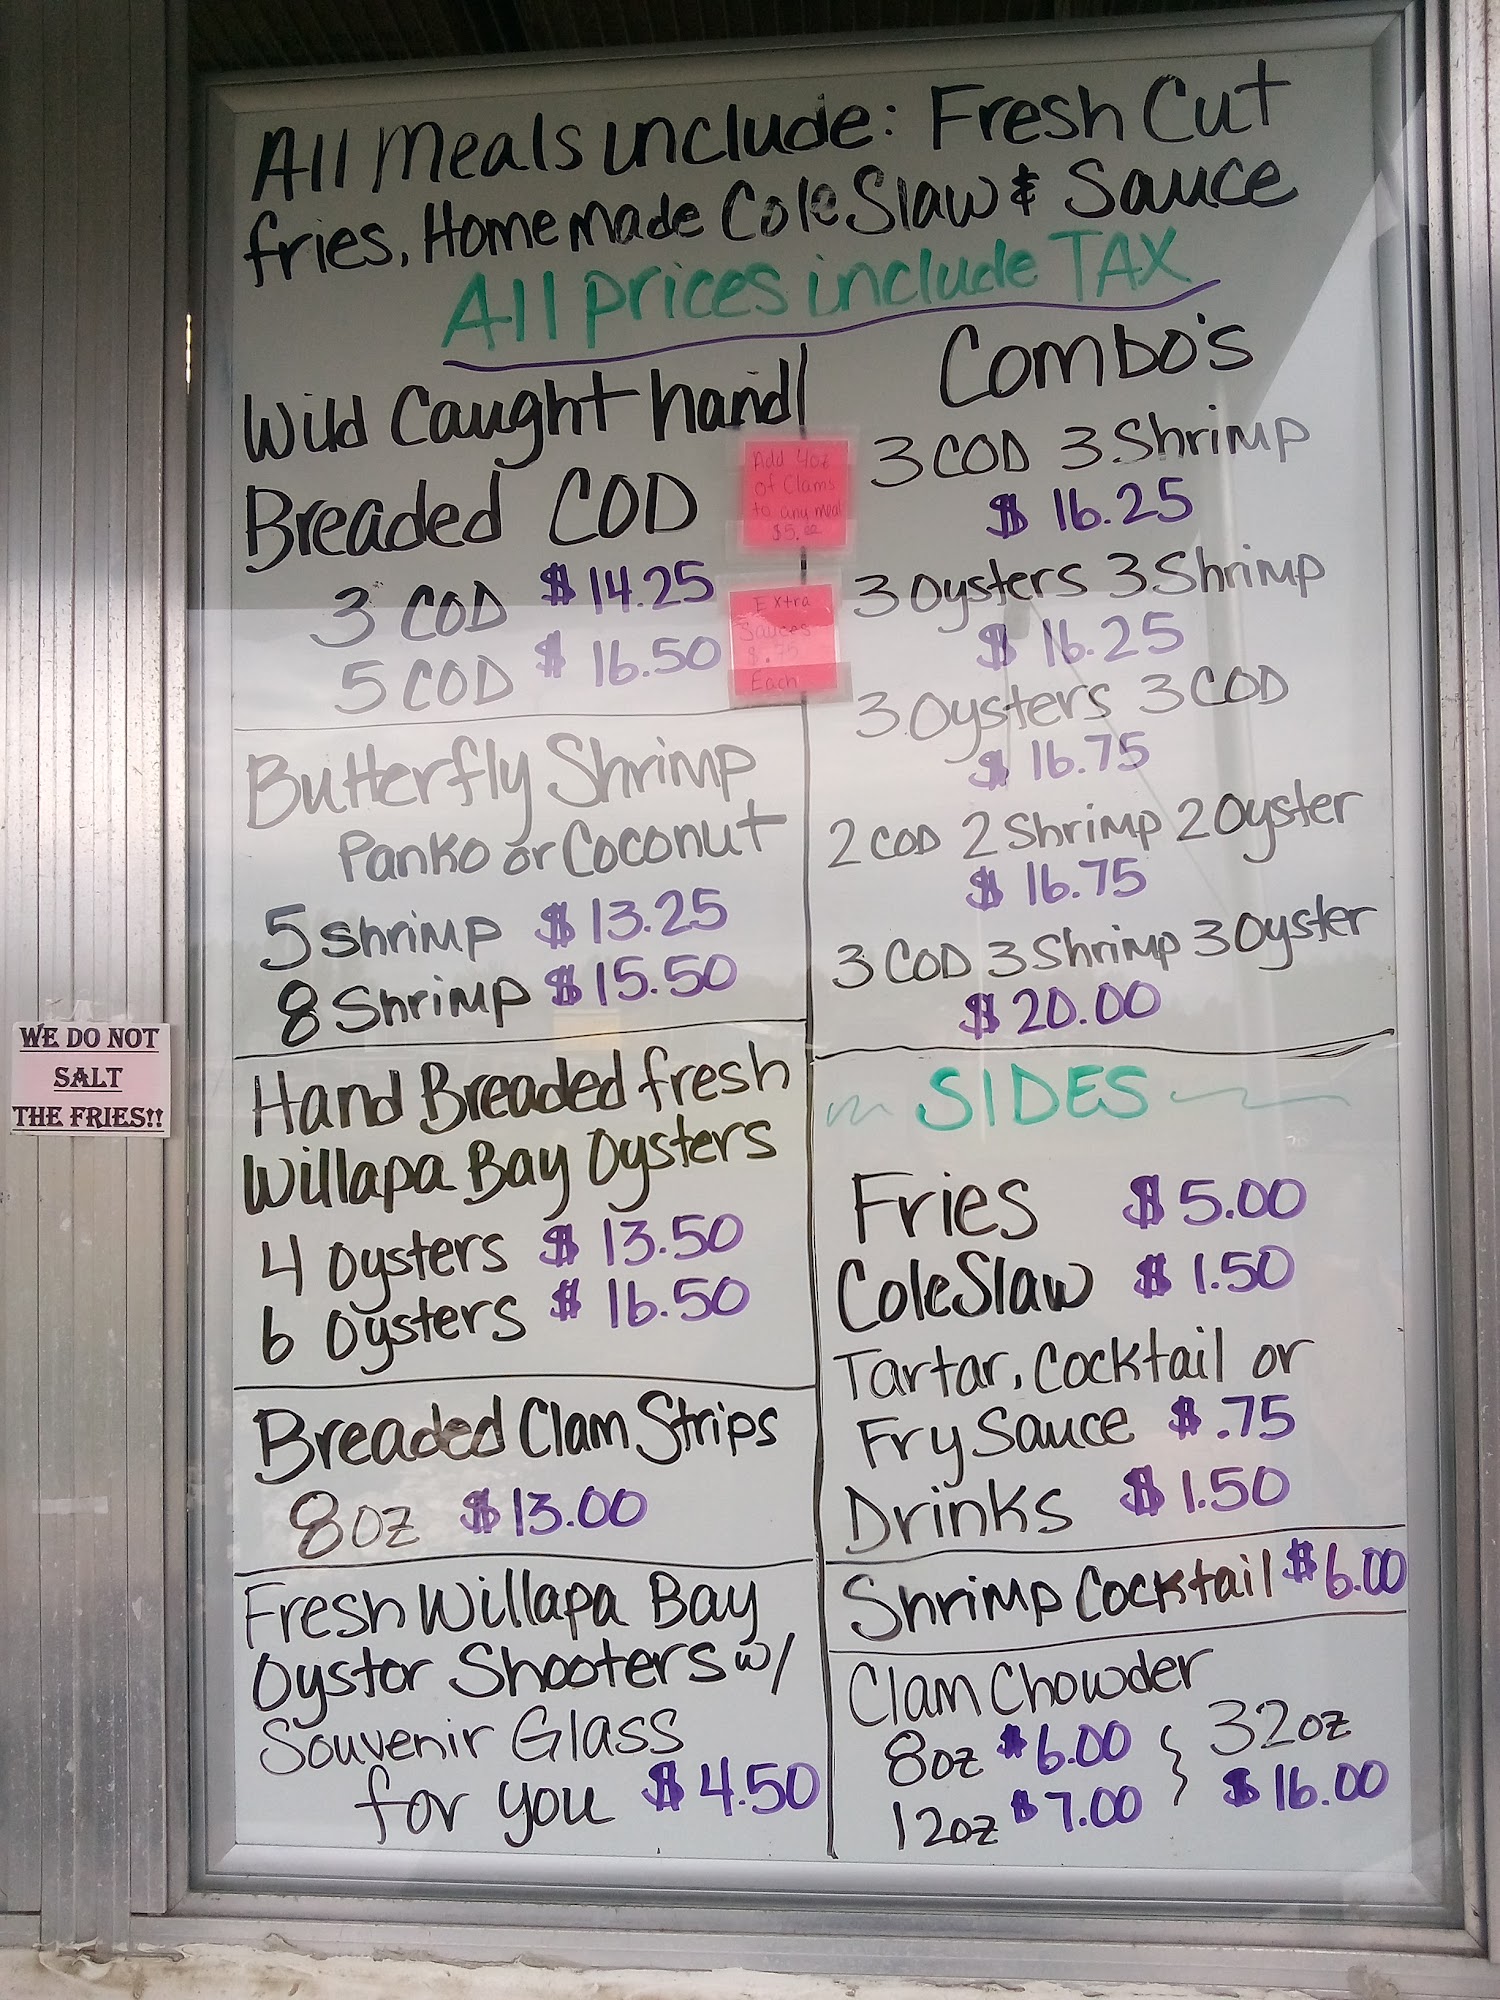 All Meals include: Fresh Cut
fries, Homemade Cole Slaw & Sauce
All prices include TAX
Wild Caught hand
Breaded COD
3 COD $14.25
5 COD $16.50
Add 4oz
of Clams
to any meal
$5.00
Extra
Sauces
$.75
Each
Butterfly Shrimp
Panko or Coconut
5 shrimp $13.25
8 Shrimp $15.50
Hand Breaded fresh
Willapa Bay Oysters
4 Oysters $13.50
6 Oysters $16.50
Breaded Clam Strips
8oz $13.00
Fresh Willapa Bay
Oystor Shooters w/
Souvenir Glass
for you $4.50
Combo's
3 COD 3 Shrimp
$16.25
3 Oysters 3 Shrimp
$16.25
3 Oysters 3 COD
$16.75
2 COD 2 Shrimp 2 Oyster
$16.75
3 COD 3 Shrimp 3 Oyster
$20.00
SIDES
Fries $5.00
Cole Slaw $1.50
Tartar, Cocktail or
Fry Sauce $.75
Drinks $1.50
Shrimp Cocktail $6.00
Clam Chowder
8oz $6.00
12oz $7.00
32oz
$16.00
WE DO NOT
SALT
THE FRIES!!